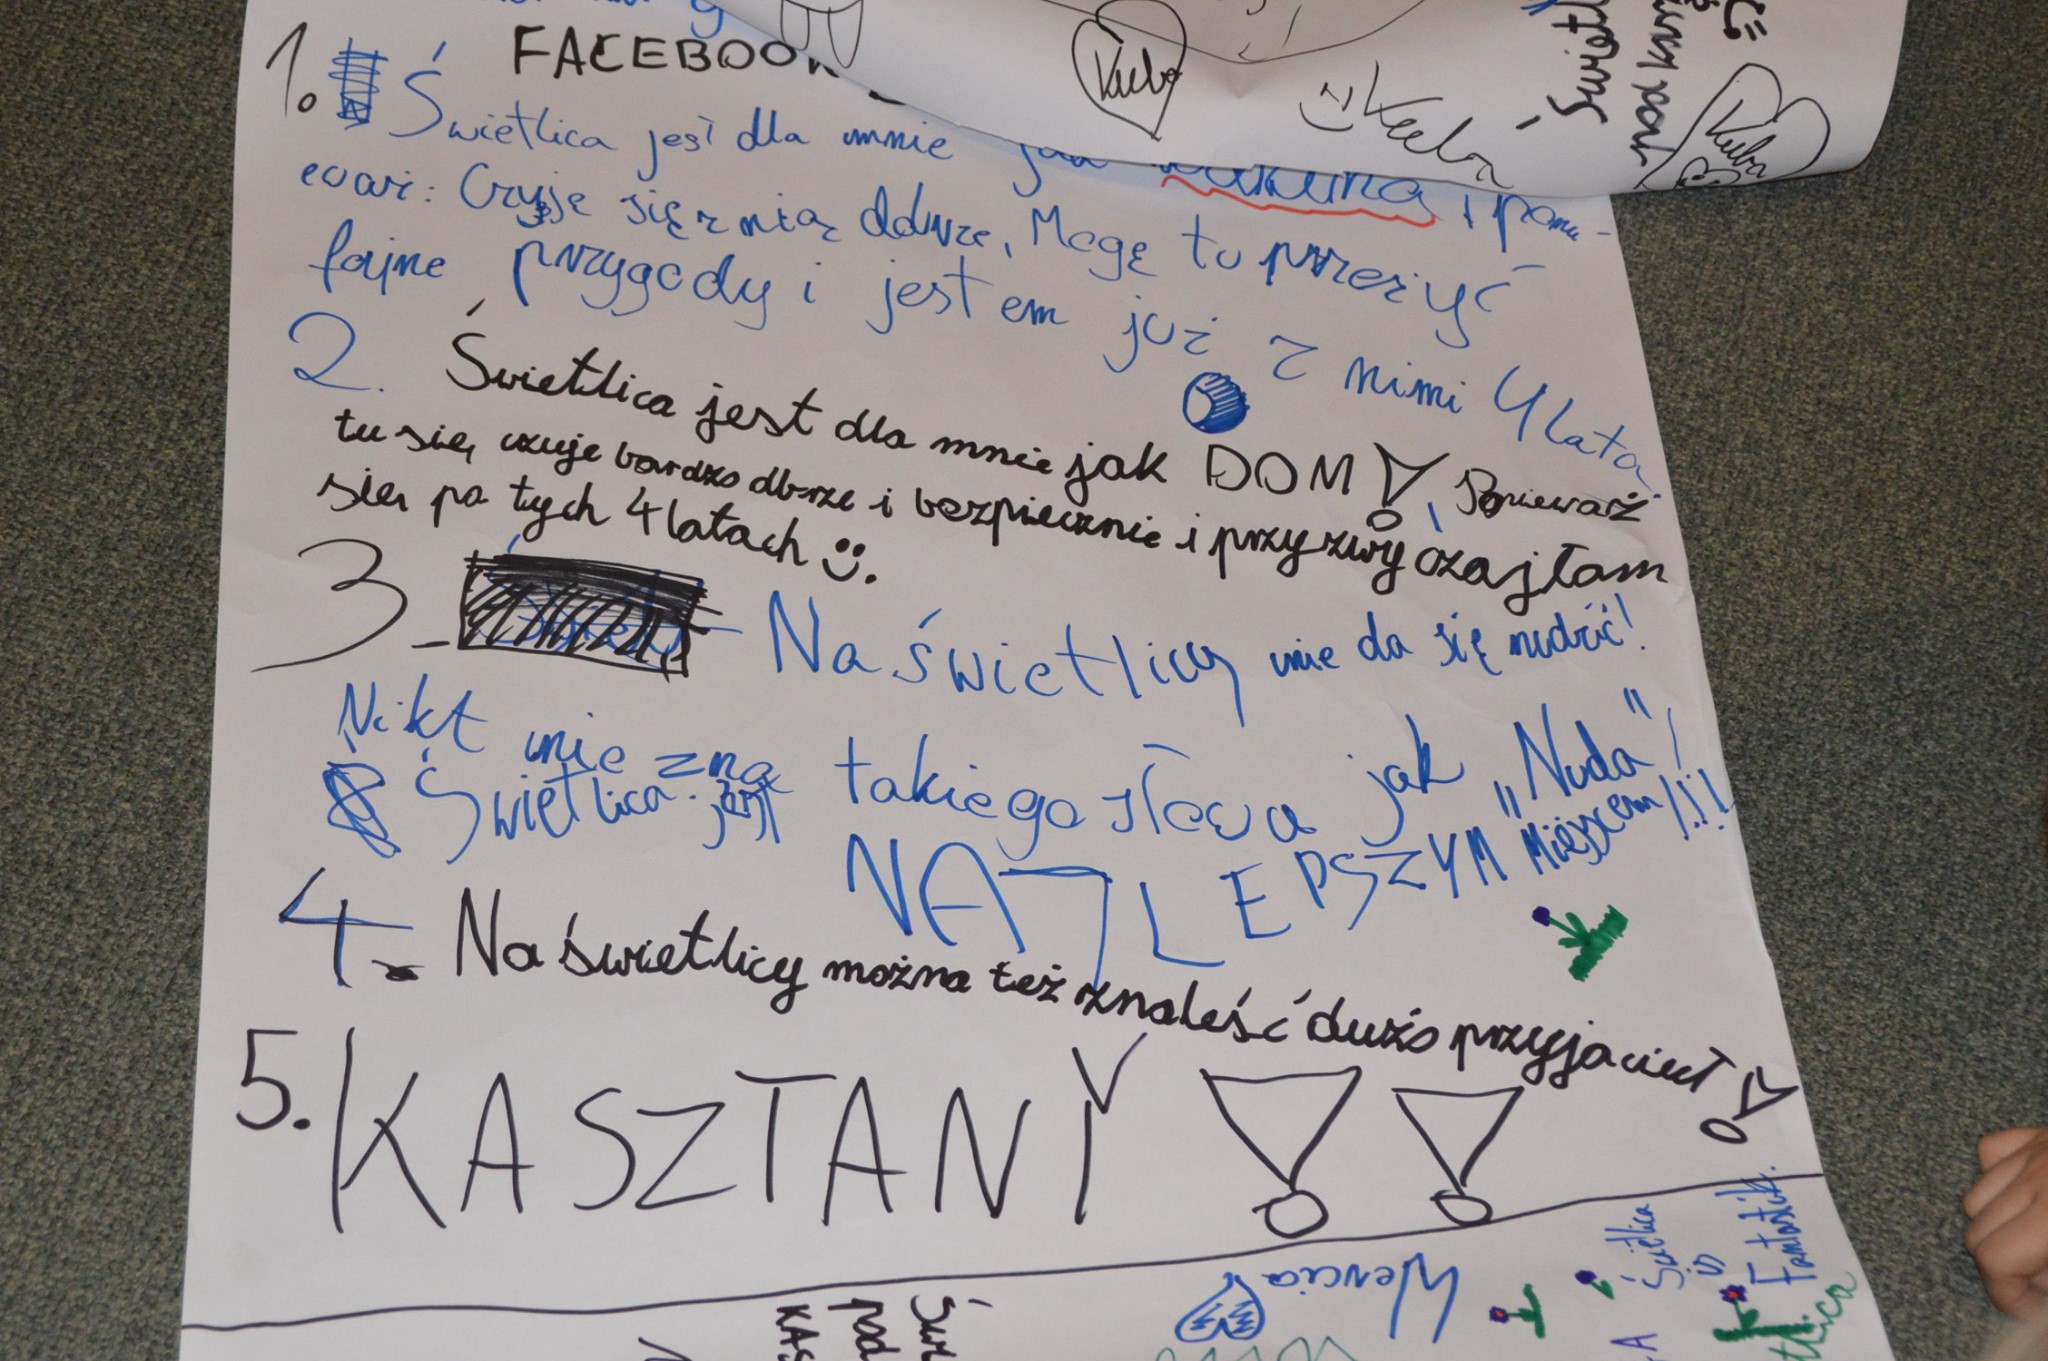 FACEBOOK
1. Świetlica jest dla mnie jak i ponie-
waż: Czyję się z nią dobrze, Mogę tu przeżyć
fajne przygody i jestem już z nimi 4 lata.
2. Świetlica jest dla mnie jak DOM! Ponieważ
tu się czuje bardzo dobrze i bezpiecznie i przyzwyczaiłam
się po tych 4 latach
3. Na świetlicy nie da się nudzić!
Nikt nie zna takiego słowa jak „Nuda"!
Świetlica jest NAJLEPSZYM Miejscem!!!
4. Na świetlicy można też znaleść dużo przyjaciół!
5. KASZTANY!!
Kuba
Kuba
Kuba
Świetlica
is
Fantastik.
Wercia